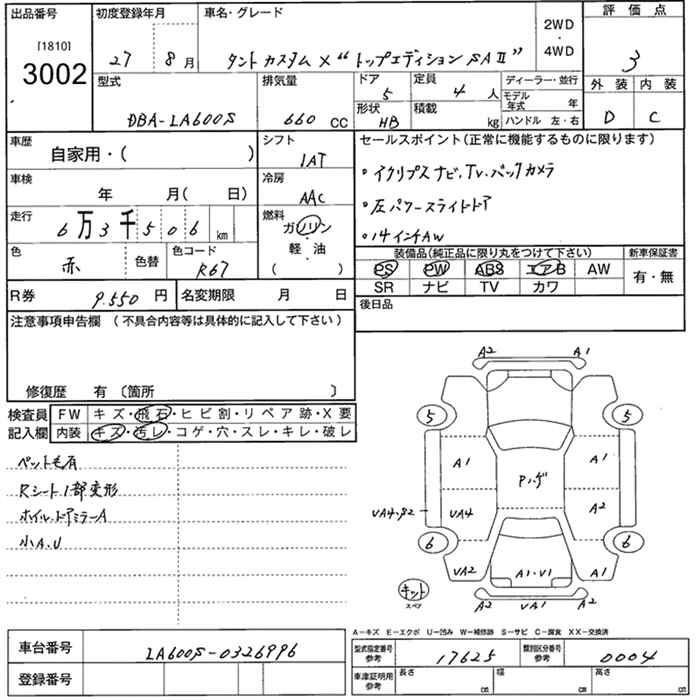 出品番号
[1810]
3002
初度登録年月
27 8月
車名・グレード
タント カスタム X "トップエディション SAⅡ"
2WD
・
4WD
評価点
3
外装 内装
D C
型式
DBA-LA600S
排気量
660 CC
ドア
5
形状
HB
定員
4 人
積載
kg
ディーラー・並行
モデル年式 年
ハンドル 左・右
車歴
自家用・( )
シフト
IAT
セールスポイント(正常に機能するものに限ります)
・イクリプスナビ、TV、バックカメラ
・左パワースライドドア
・14インチAW
車検
年 月( 日)
冷房
AAC
走行
6万3千506 km
燃料
ガソリン
軽・油
( )
色
赤
色替
色コード
R67
装備品(純正品に限り丸をつけて下さい)
PS PW ABS エアB AW
SR ナビ TV カワ
新車保証書
有・無
R券
9,550 円
名変期限 月 日
後日品
注意事項申告欄 (不具合内容等は具体的に記入して下さい)
修復歴 有 〔箇所 〕
検査員記入欄
FW キズ・飛石・ヒビ割・リペア跡・X要
内装 キズ・汚レ・コゲ・穴・スレ・キレ・破レ
ペット毛有
Rシート1部変形
ホイル、ドアミラーA
小A.U
A2 A1
5 5
A1 A1
P・ゲ
UA4・B2 UA4 A2
6 6
UA2 A1・U1 A1
キット
スペア
A2 UA1 A2
A−キズ E−エクボ U−凹み W−補修跡 S−サビ C−腐食 XX−交換済
車台番号
LA600S-0326996
登録番号
型式指定番号
参考
17625
類別区分番号
参考
0004
車庫証明用
参考
長さ cm
幅 cm
高さ cm